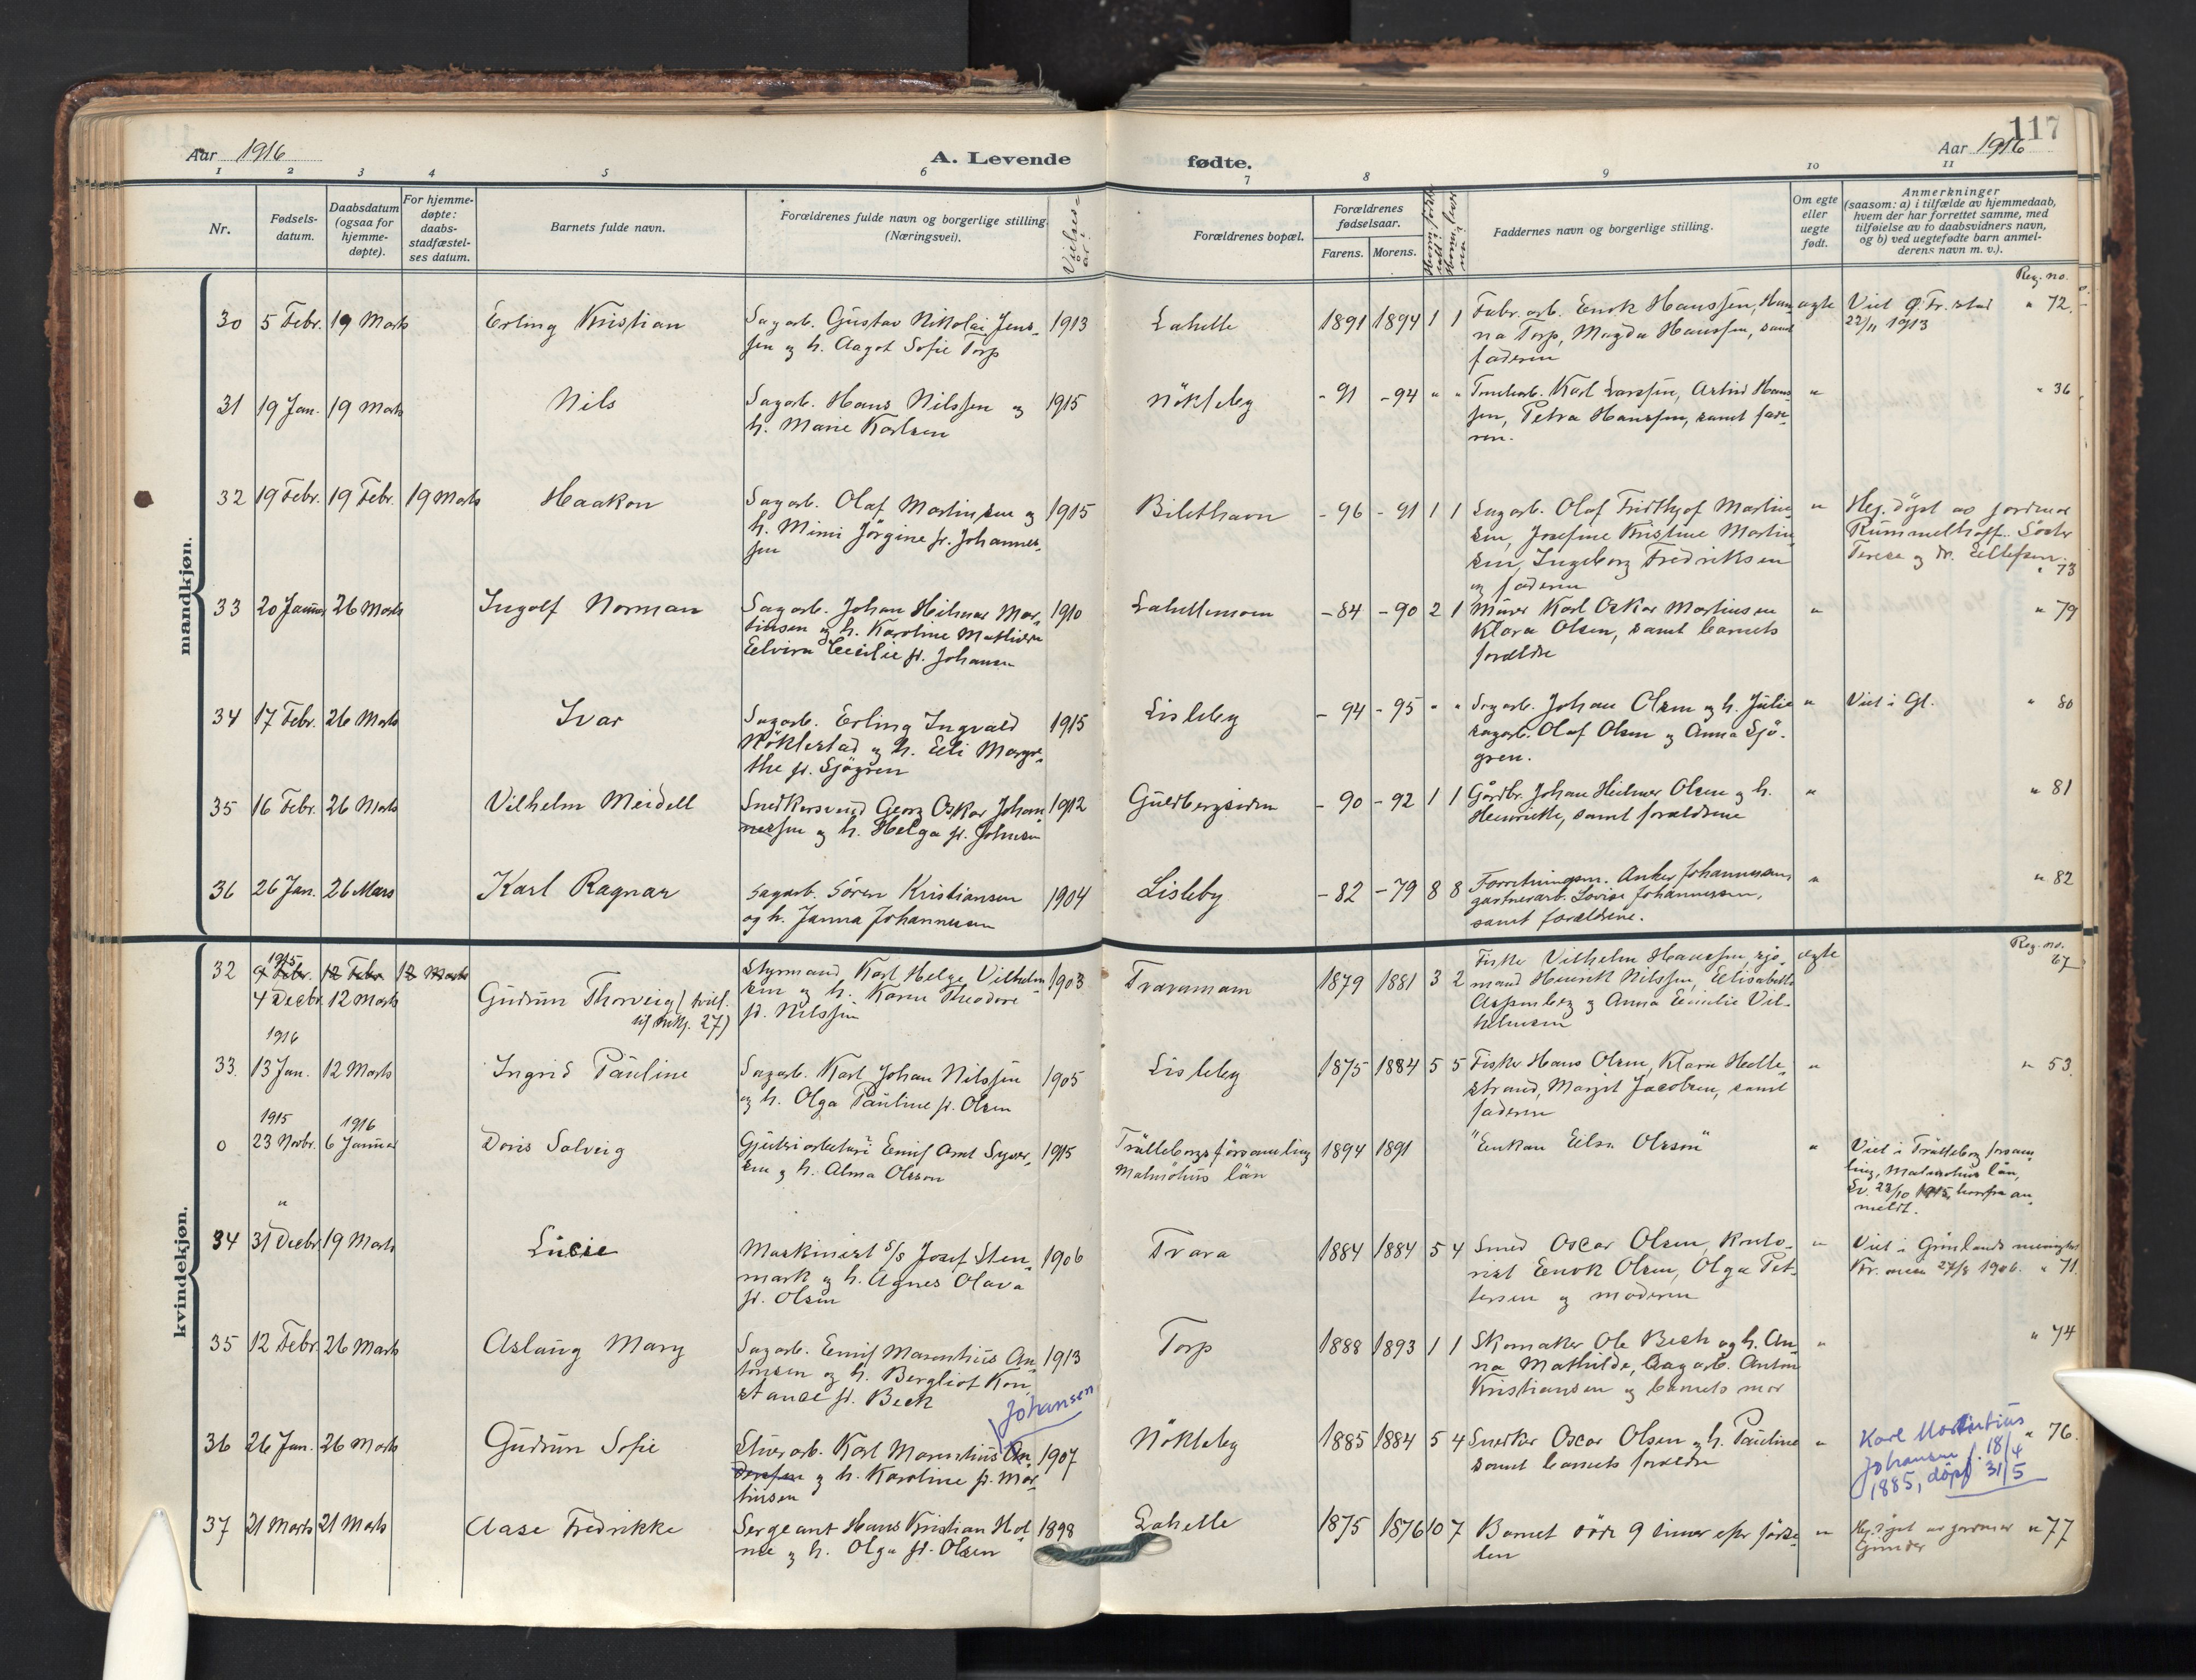 117
Aar 1916
A. Levende
fødte.
Aar 1916
1 2 3 4 5 6 7 8 9 10 11
Nr.
Fødsels-
datum.
Daabsdatum
(ogsaa for
hjemme-
døpte).
For hjemme-
døpte:
daabs-
stadfæstel-
ses datum.
Barnets fulde navn.
Forældrenes fulde navn og borgerlige stilling
(Næringsvei).
Vielses-
aar
Forældrenes bopæl.
Forældrenes
fødselsaar.
Farens. Morens.
Faddernes navn og borgerlige stilling.
Om egte
eller
uegte
født.
Anmerkninger
(saasom: a) i tilfælde av hjemmedaab,
hvem der har forrettet samme, med
tilføielse av to daabsvidners navn,
og b) ved uegtefødte barn anmel-
derens navn m. v.).
Reg. no.
mandkjøn.
30 5 Febr. 19 Marts Erling Kristian
Sagarb. Gustav Nikolai Jens-
sen og h. Aagot Sofie Torp
1913 Lahelle 1891 1894 1 1
Fabr. arb. Enok Hanssen, Han
na Torp, Magda Hanssen, samt
faderen
egte
Viet Ø. Fr. stad
22/11 1913
" 72.
31 19 Jan. 19 Marts Nils
Sagarb. Hans Nilssen og
h. Marie Karlsen
1915 Nökleby - 91 - 94 " "
Karl Larssen, Astrid Hans
sen, Petra Hanssen, samt fade-
ren.
" " 36
32 19 Febr. 19 Febr. 19 Marts Haakon
Sagarb. Olaf Martinsen og
h. Mimi Jörgine f. Johannes-
sen
1915 Bilethavn - 96 - 91 1 1
Sagarb. Olaf Fridthjof Martin
sen, Josefine Kristine Martin
sen, Ingeborg Fredriksen
og faderen
"
Hej. døpt av jordmor
Rummelhoff. Söster
Terese og dr. Ellefsen.
" 73
33 20 Januar 26 Marts Ingolf Norman
Sagarb. Johan Hilmar Mar-
tinsen og h. Karoline Mathilde
Elvira Cecilie f. Johansen
1910 Lahellemoen - 84 - 90 2 1
Murer Karl Oskar Martinsen
Klara Olsen, samt barnets
forældre
" " 79
34 17 Febr. 26 Marts Ivar
Sagarb. Erling Ingvald
Nöklestad og h. Elli Margre-
the f. Sjögren
1915 Lisleby - 94 - 95 " "
Sagarb. Johan Olsen og h. Julie
sagarb. Olaf Olsen og Anna Sjö-
gren.
" Viet i Gl. " 80
35 16 Febr. 26 Marts Vilhelm Meidell
Snedkersvend Georg Oskar Johan
nessen og h. Helga f. Johnsen
1912 Guldbergsiden - 90 - 92 1 1
Gårdbr. Johan Hilmer Olsen og h.
Henriette, samt forældrene
" " 81
36 26 Jan. 26 Mars Karl Ragnar
Sagarb. Sören Kristiansen
og h. Janna Johannesen
1904 Lisleby - 82 - 79 8 8
Forretningsm. Anker Johannessen,
gartnerarb. Lovise Johannessen,
samt forældrene.
" " 82
kvindekjøn.
Reg. no.
1915
32 4 Febr. 12 Febr. 12 Marts
4 Decbr. 12 Marts Gudrun Thorveig (tvill.
til mkj. 27)
Styrmand Karl Helge Vilhelm
sen og h. Karen Theodore
f. Nilssen
1903 Traramoen 1879 1881 3 2
Fisker Vilhelm Hanssen, sjö-
mand Henrik Nilssen, Elisabeth
Aspenberg og Anna Emilie Vil-
helmsen
egte 67
1916
33. 13 Jan. 12 Marts Ingrid Pauline
Sagarb. Karl Johan Nilssen
og h. Olga Pauline f. Olsen
1905 Lisleby 1875 1884 5 5
Fisker Hans Olsen, Klara Helle-
strand, Margit Jacobsen, samt
faderen
" " 53.
1915 1916
0 23 Novbr. 6 Januar Doris Solveig
Gjuteriarbetare Emil Arnt Syver-
sen og h. Alma Olsson
1915 Trälleborgs församling
Malmöhus län
1894 1891 "Enkan Elsa Olsson" "
Viet i Trälleborg forsam
ling, Malmöhus län,
Sv. 23/10 1915, herfra an
meldt.
"
34 31 Decbr. 19 Marts Lucie
Maskinist S/S Josef Sten-
mark og h. Agnes Olava
f. Olsen
1906 Trara 1884 1884 5 4
Smed Oscar Olsen, konto-
rist Enok Olsen, Olga Pet-
tersen og moderen
"
Viet i Grönlands menighet
Kr.ania 27/8 1906. " 71.
35 12 Febr. 26 Marts Aslaug Mary
Sagarb. Emil Marenthius An-
tonsen og h. Bergliot Kon-
stance f. Beck
1913 Torp 1888 1893 1 1
Skomaker Ole Beck og h. An-
na Mathilde, Sagarb. Anton
Kristiansen og barnets mor
" " 74
Johansen
36 26 Jan. 26 Marts Gudrun Sofie
Stuerarb. Karl Marenthius An-
derssen og h. Karoline f. Mar-
tinsen
1907 Nökleby 1885 1884 5 4
Snedker Oscar Olsen og h. Pauline
samt barnets forældre
"
Karl Martinius
Johansen f. 18/4
1885, döpt 31/5
" 76.
37 21 Marts 21 Marts Aase Fredrikke
Sergeant Hans Kristian Hol
me og h. Olga f. Olsen
1898 Lahelle 1875 1876 10 7
Barnet döde 9 timer efter födse-
len
"
Hej. döpt av jordmor
Gunder
" 77